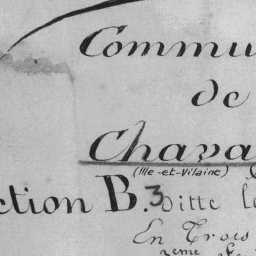 Commu
de
Chava
(Ille-et-Vilaine)
ction B.3 Ditte l
En Trois
2eme